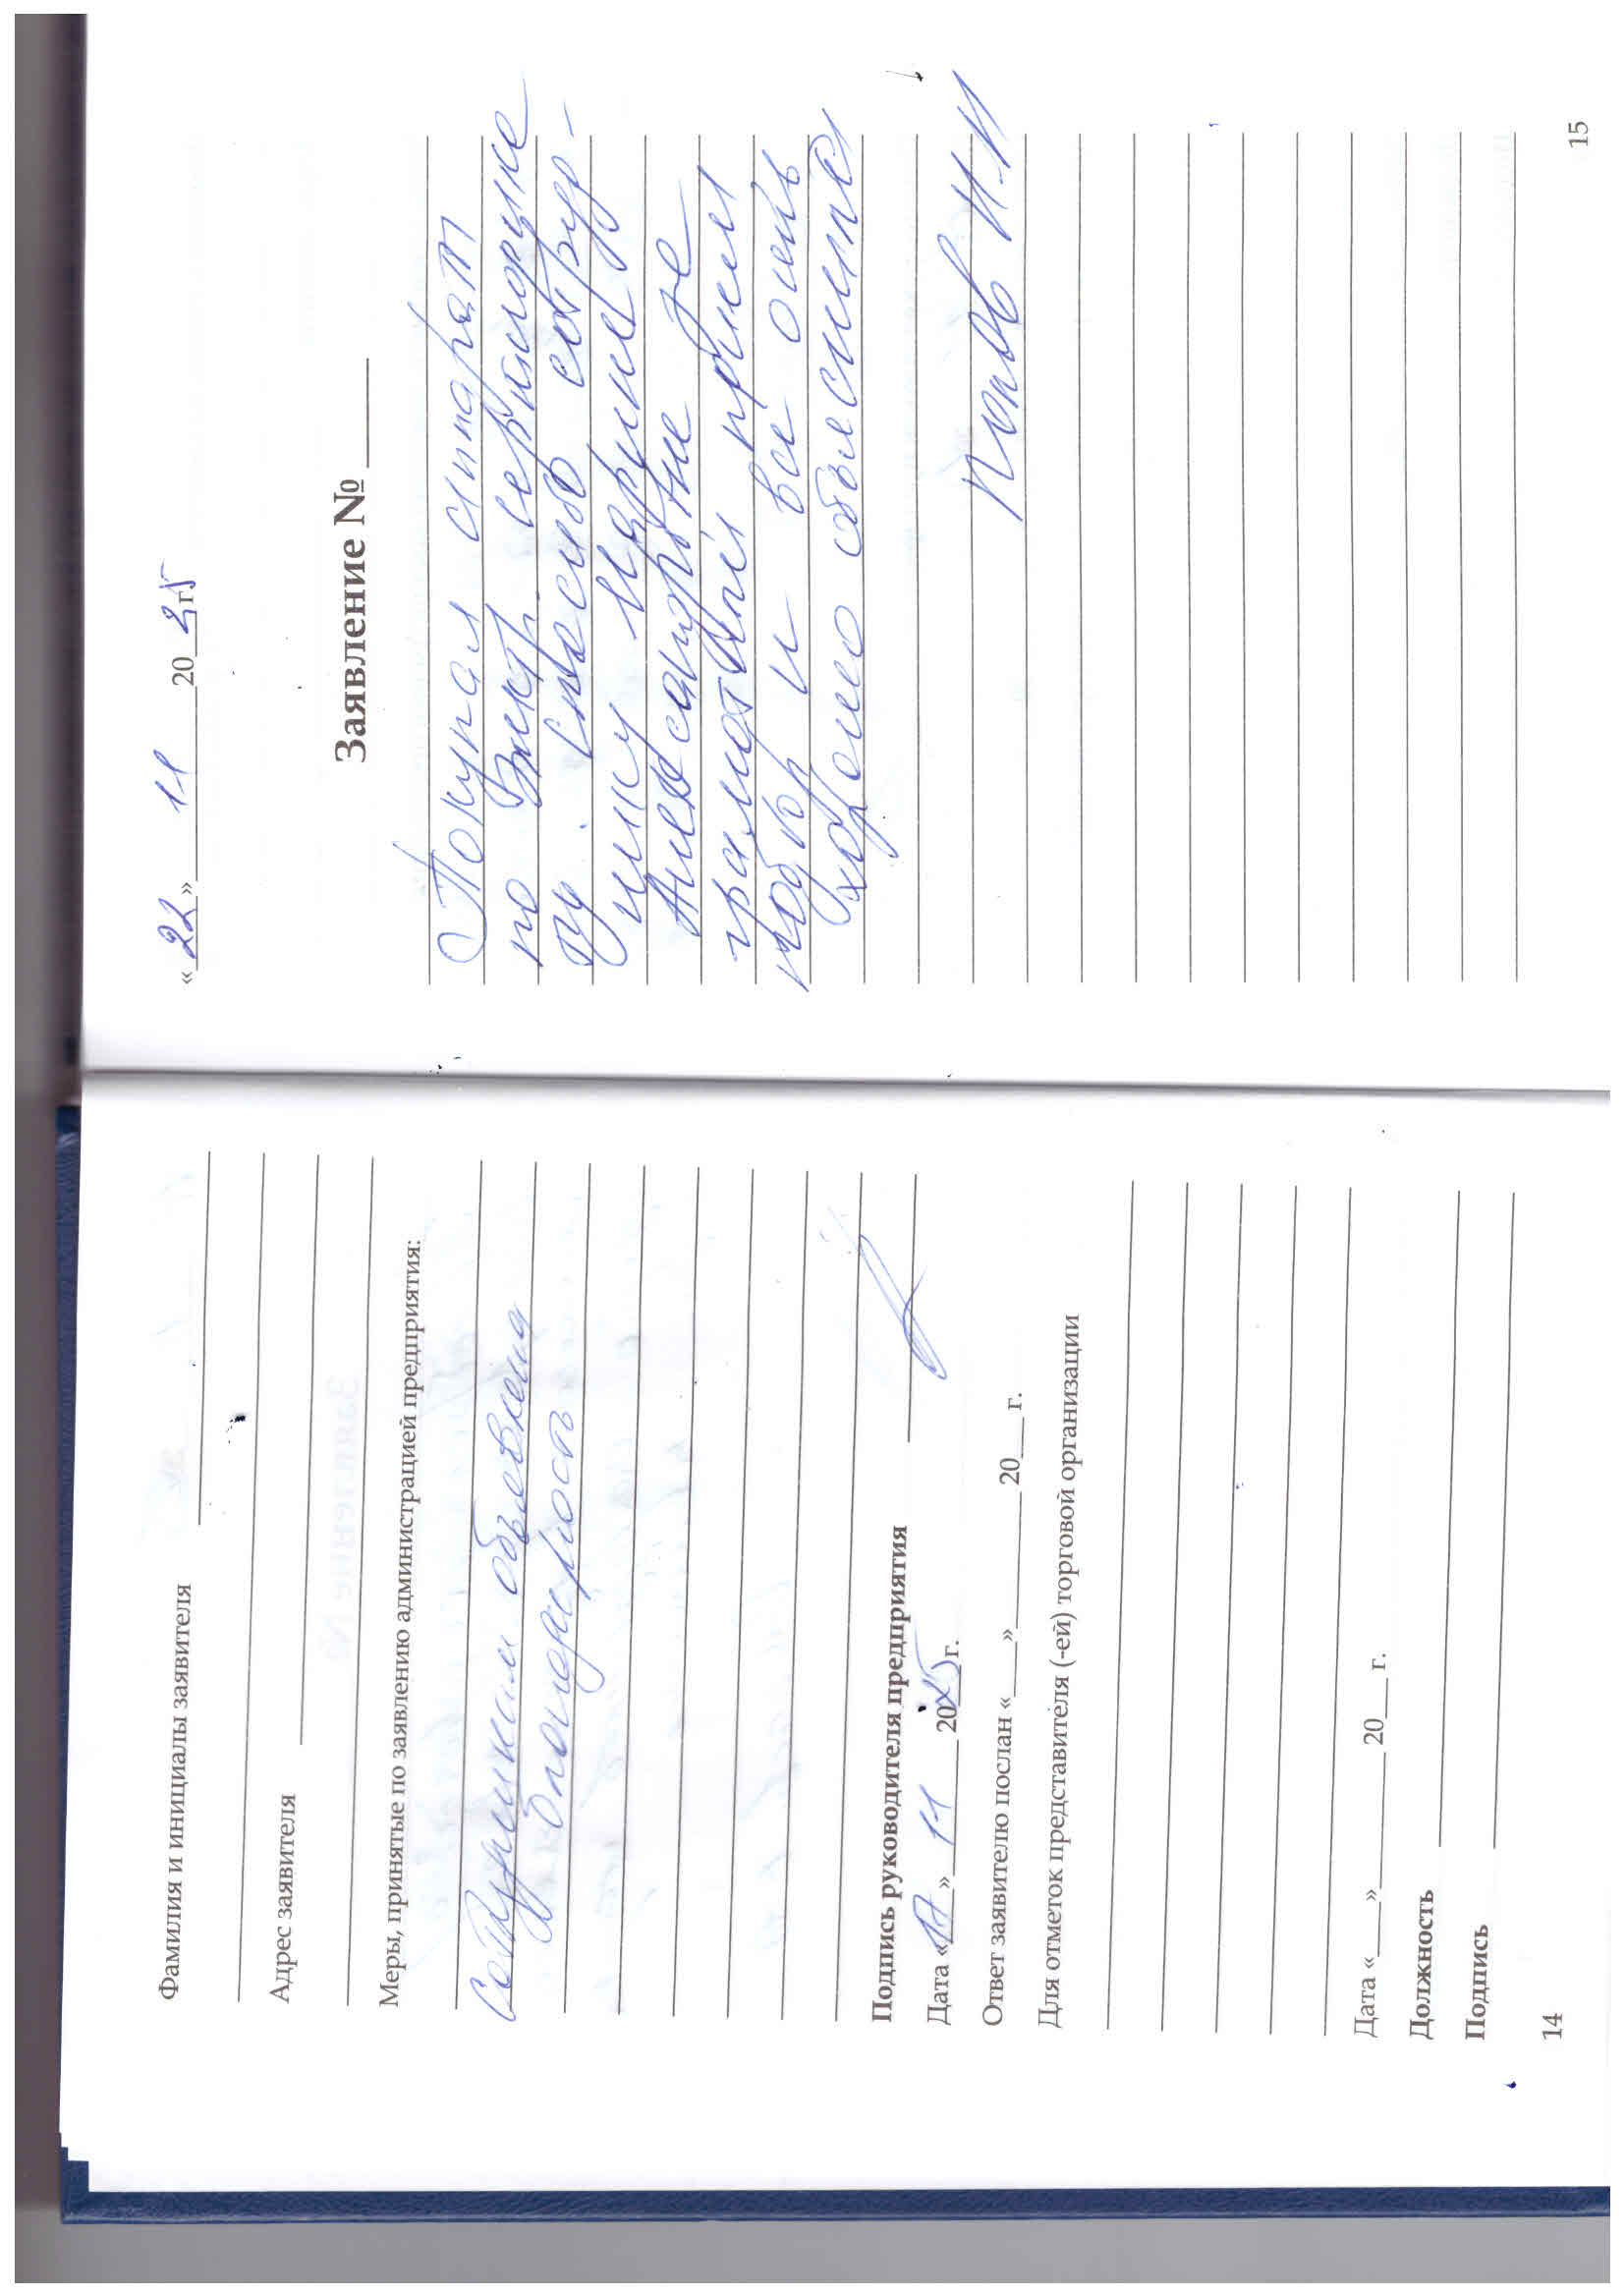 Фамилия и инициалы заявителя
Адрес заявителя
Меры, принятые по заявлению администрацией предприятия:
Сотрудникам объявлена
благодарность
Подпись руководителя предприятия
Дата «17» 11 2025г.
Ответ заявителю послан «___» ______ 20___ г.
Для отметок представителя (-ей) торговой организации
Дата «___» ______ 20___ г.
Должность
Подпись
14
«22» 11 2025 г.
Заявление №
Покупал аппарат
по сертификa
ту. Спасибо сотруд-
нику Марине
Александровне за
грамотный прием
и всё очень
хорошо объяснила
Попов И.И
15